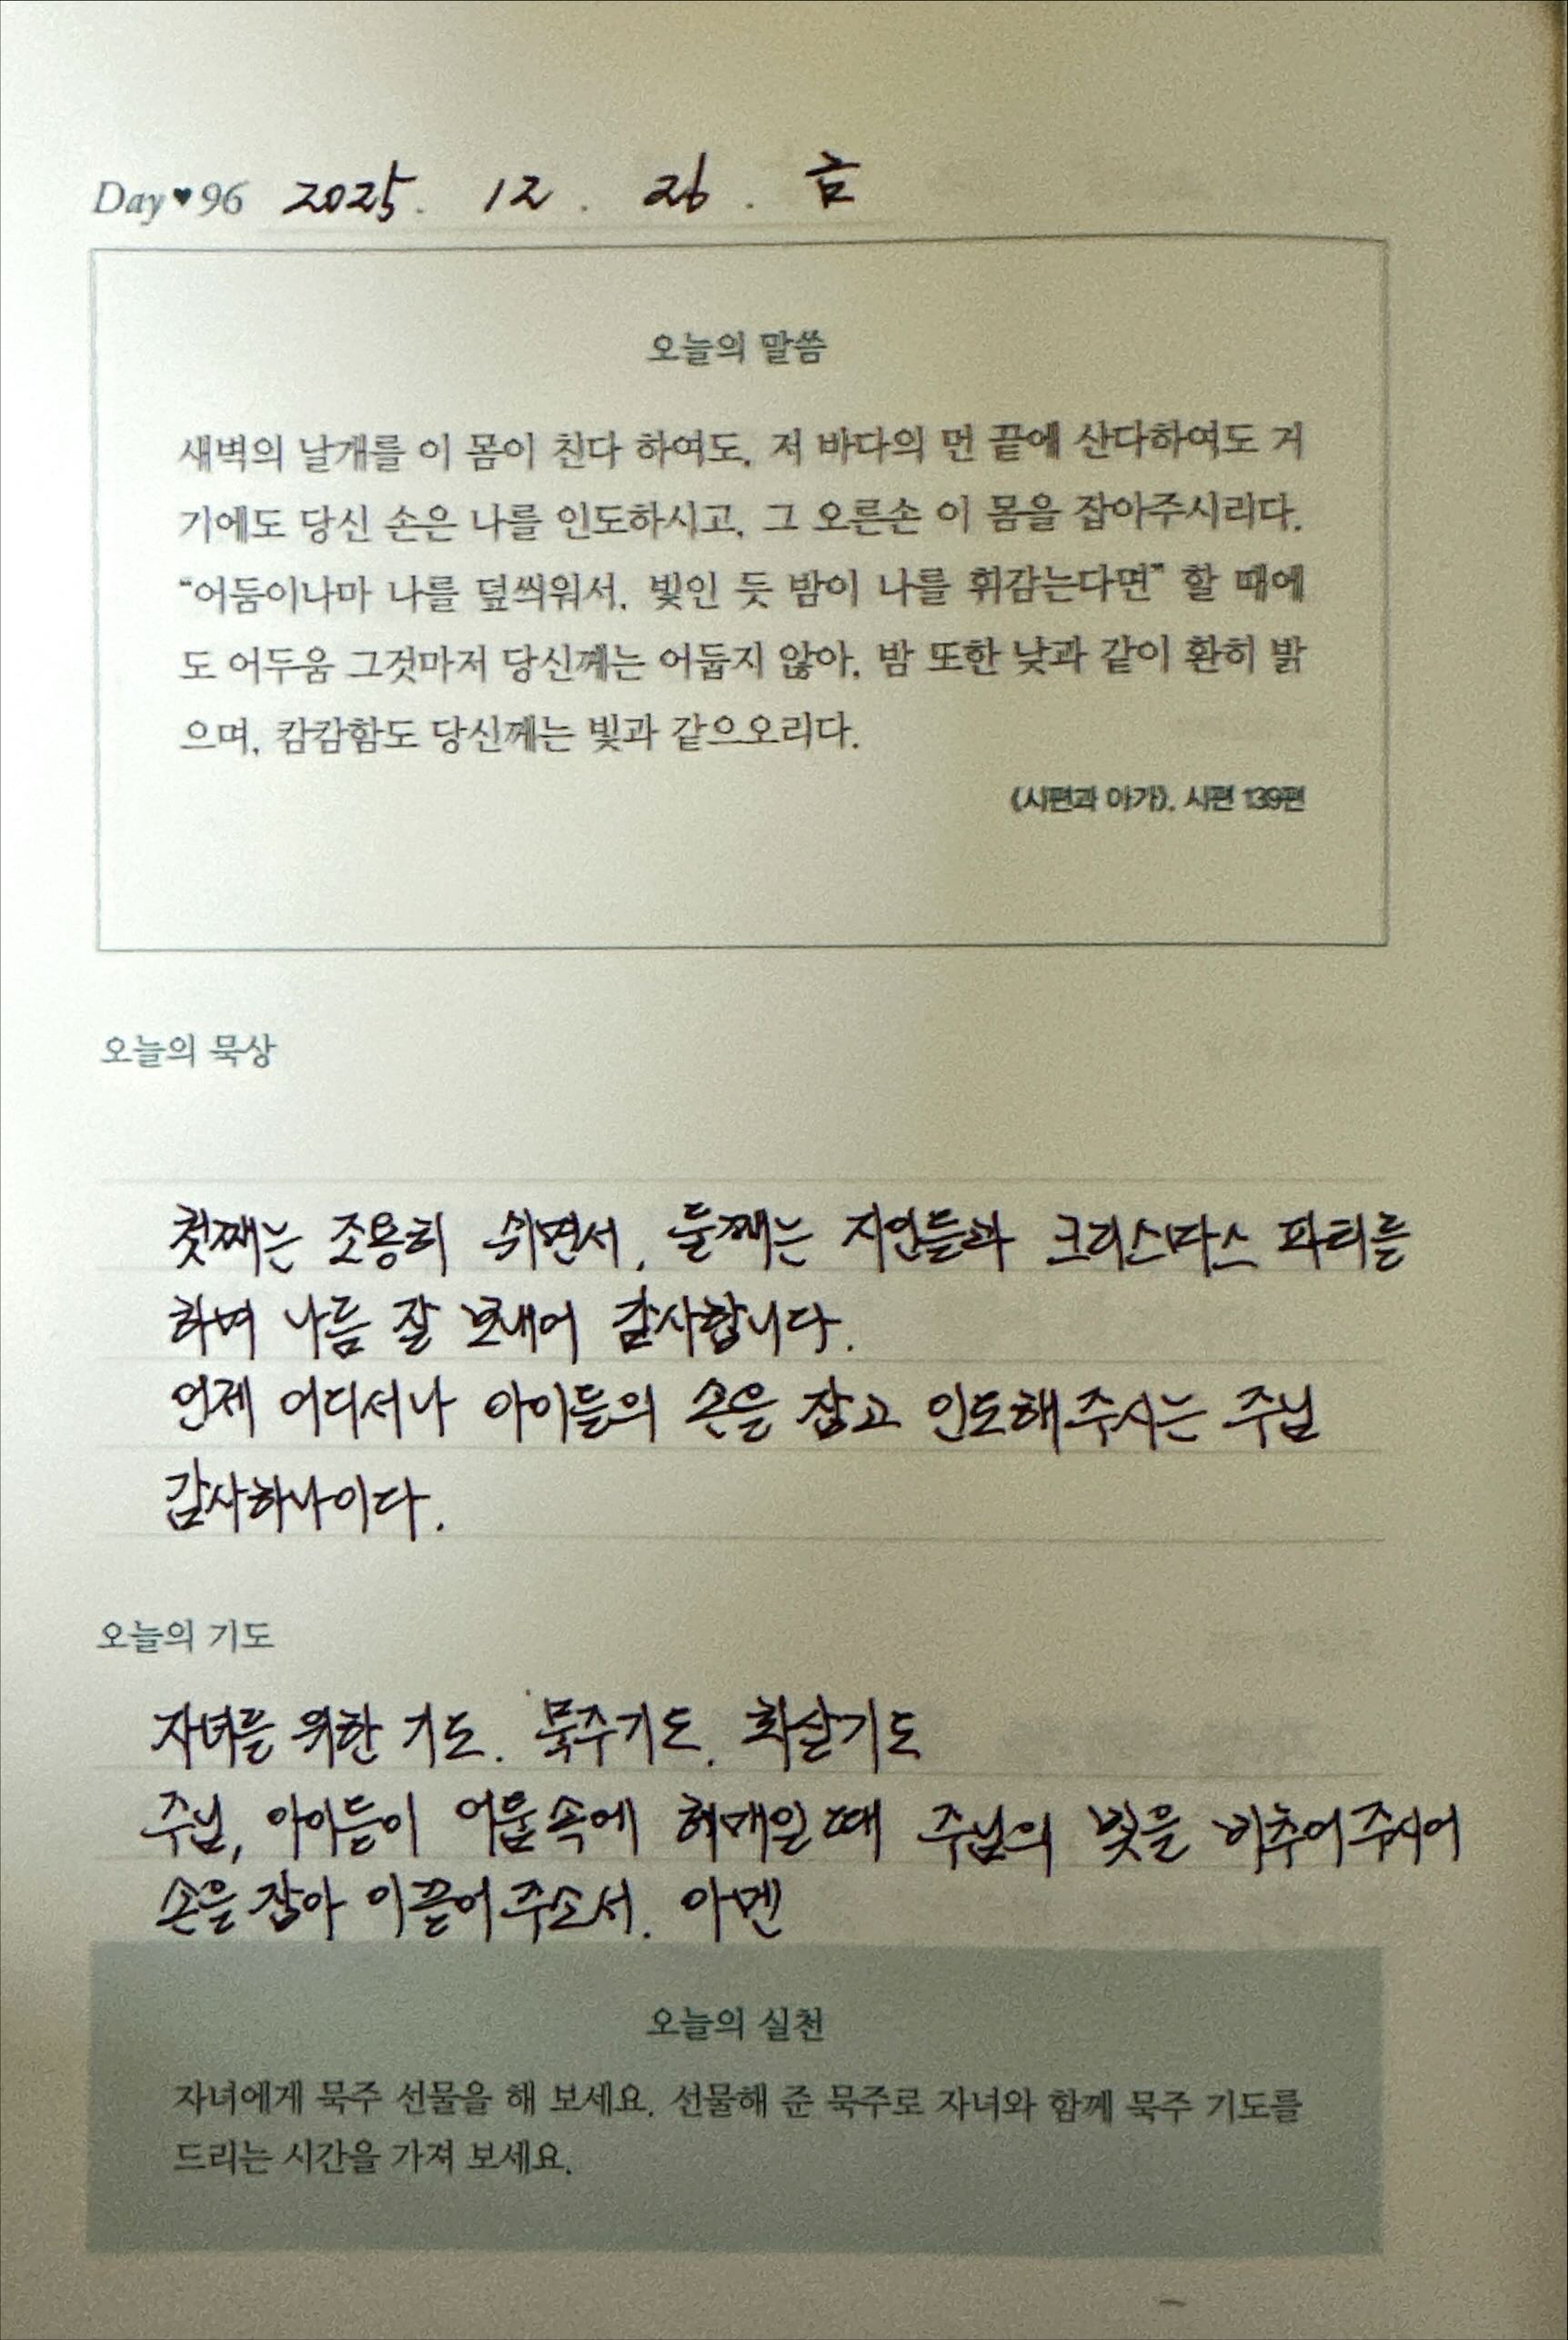 Day♥96 2025. 12. 26. 금
오늘의 말씀
새벽의 날개를 이 몸이 친다 하여도, 저 바다의 먼 끝에 산다하여도 거
기에도 당신 손은 나를 인도하시고, 그 오른손 이 몸을 잡아주시리다.
“어둠이나마 나를 덮씌워서, 빛인 듯 밤이 나를 휘감는다면” 할 때에
도 어두움 그것마저 당신께는 어둡지 않아, 밤 또한 낮과 같이 환히 밝
으며, 캄캄함도 당신께는 빛과 같으오리다.
《시편과 아가》, 시편 139편
오늘의 묵상
첫째는 조용히 쉬면서, 둘째는 지인들과 크리스마스 파티를
하며 나름 잘 보내어 감사합니다.
언제 어디서나 아이들의 손을 잡고 인도해주시는 주님
감사하나이다.
오늘의 기도
자녀를 위한 기도. 묵주기도. 화살기도
주님, 아이들이 어둠속에 헤매일때 주님의 빛을 비추어주시어
손을 잡아 이끌어주소서. 아멘
오늘의 실천
자녀에게 묵주 선물을 해 보세요. 선물해 준 묵주로 자녀와 함께 묵주 기도를
드리는 시간을 가져 보세요.